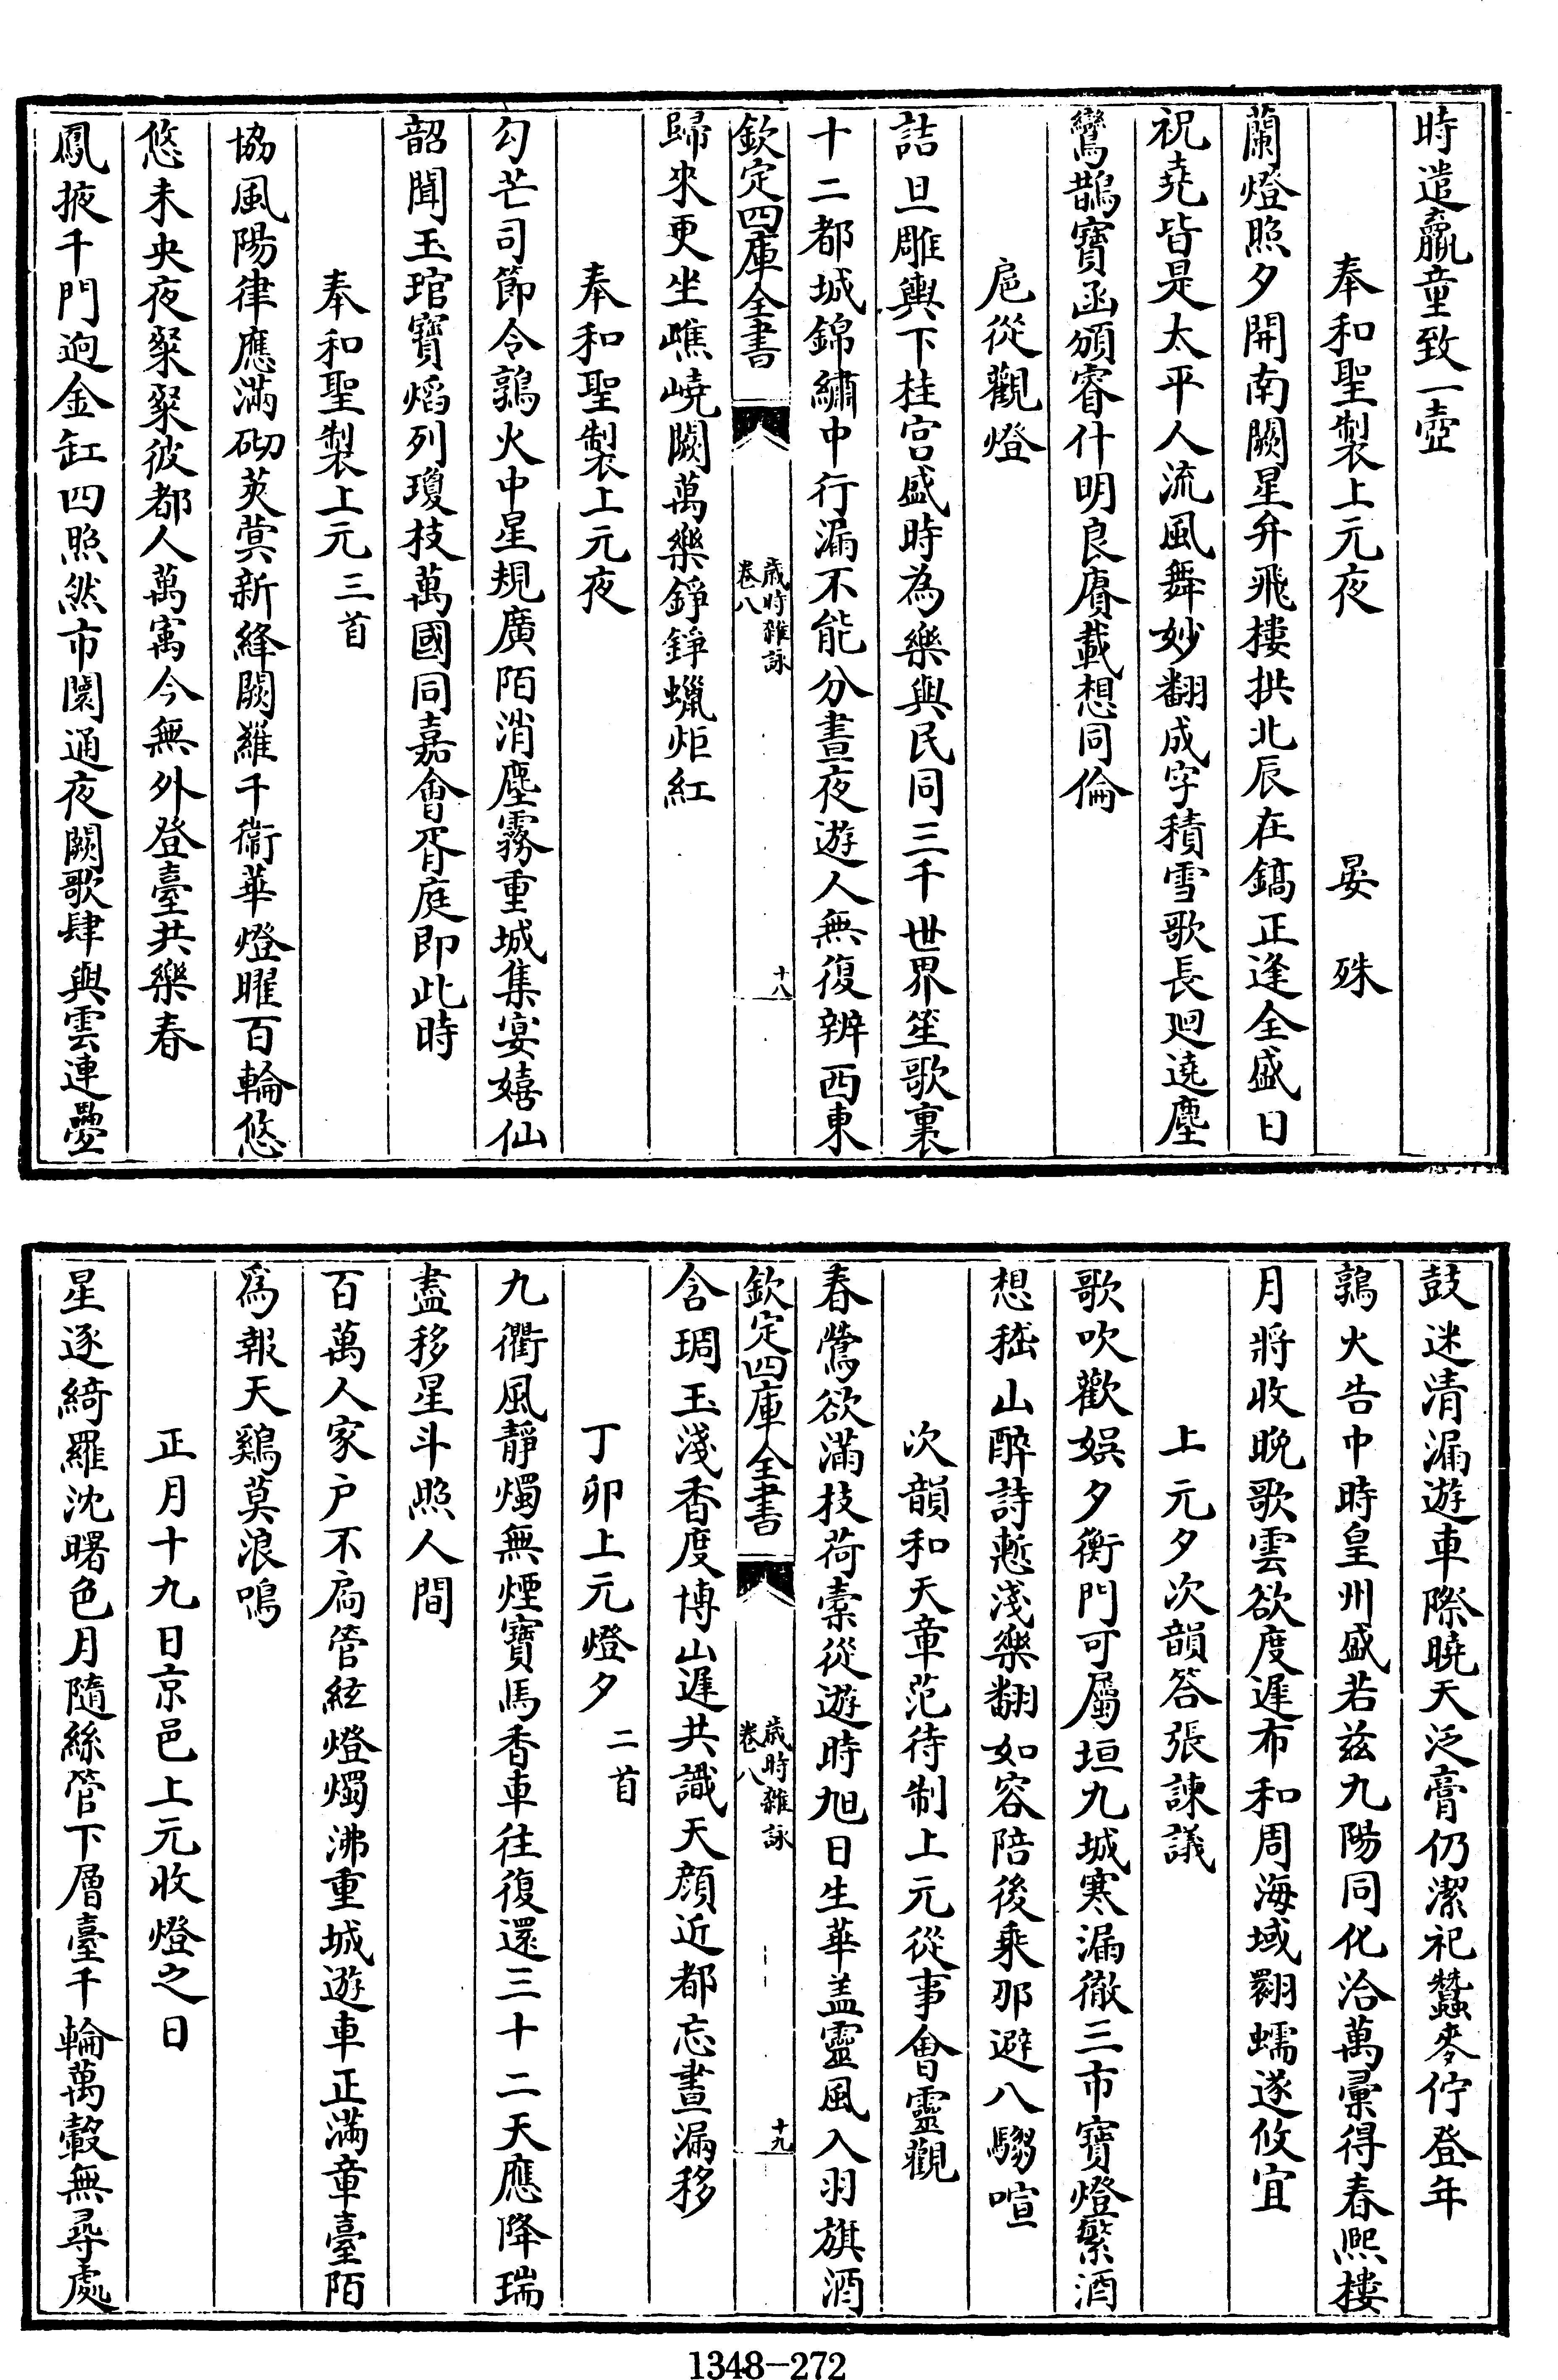 時遣羸童致一壺
奉和聖製上元夜　晏殊
蘭燈照夕開南闕星弁飛樓拱北辰在鎬正逢全盛日
祝堯皆是太平人流風舞妙翻成字積雪歌長廻遶塵
鸞鵲寳函頒睿什明良賡載想同倫
扈從觀燈
詰旦雕輿下桂宫盛時為樂與民同三千世界笙歌裏
十二都城錦繡中行漏不能分晝夜遊人無復辨西東
欽定四庫全書　歲時雜詠卷八　十八
歸來更坐嶕嶢闕萬樂錚錚蠟炬紅
奉和聖製上元夜
勾芒司節令鶉火中星規廣陌消塵霧重城集宴嬉仙
韶聞玉琯寳熖列瓊枝萬國同嘉會胥庭即此時
奉和聖製上元三首
協風陽律應滿砌莢蓂新絳闕羅千衛華燈曜百輪悠
悠未央夜粲粲彼都人萬寓今無外登臺共樂春
鳳掖千門逈金缸四照然市闤通夜闕歌肆與雲連疊
鼓迷清漏遊車際曉天泛膏仍潔祀蠶麥佇登年
鶉火告中時皇州盛若兹九陽同化洽萬彚得春熙樓
月將收晚歌雲欲度遲布和周海域翾蠕遂攸宜
上元夕次韻答張諫議
歌吹歡娯夕衡門可屬垣九城寒漏徹三市寳燈繁酒
想嵇山醉詩慙淺樂翻如容陪後乘那避八騶喧
次韻和天章范待制上元從事會靈觀
春鶯欲滿枝荷橐從遊時旭日生華盖靈風入羽旗酒
欽定四庫全書　歲時雜詠卷八　十九
含琱玉淺香度博山遲共識天顔近都忘晝漏移
丁卯上元燈夕二首
九衢風靜燭無煙寳馬香車往復還三十二天應降瑞
盡移星斗照人間
百萬人家户不扃管絃燈燭沸重城遊車正滿章臺陌
為報天鷄莫浪鳴
正月十九日京邑上元收燈之日
星逐綺羅沈曙色月隨絲管下層臺千輪萬轂無尋處
1348-272